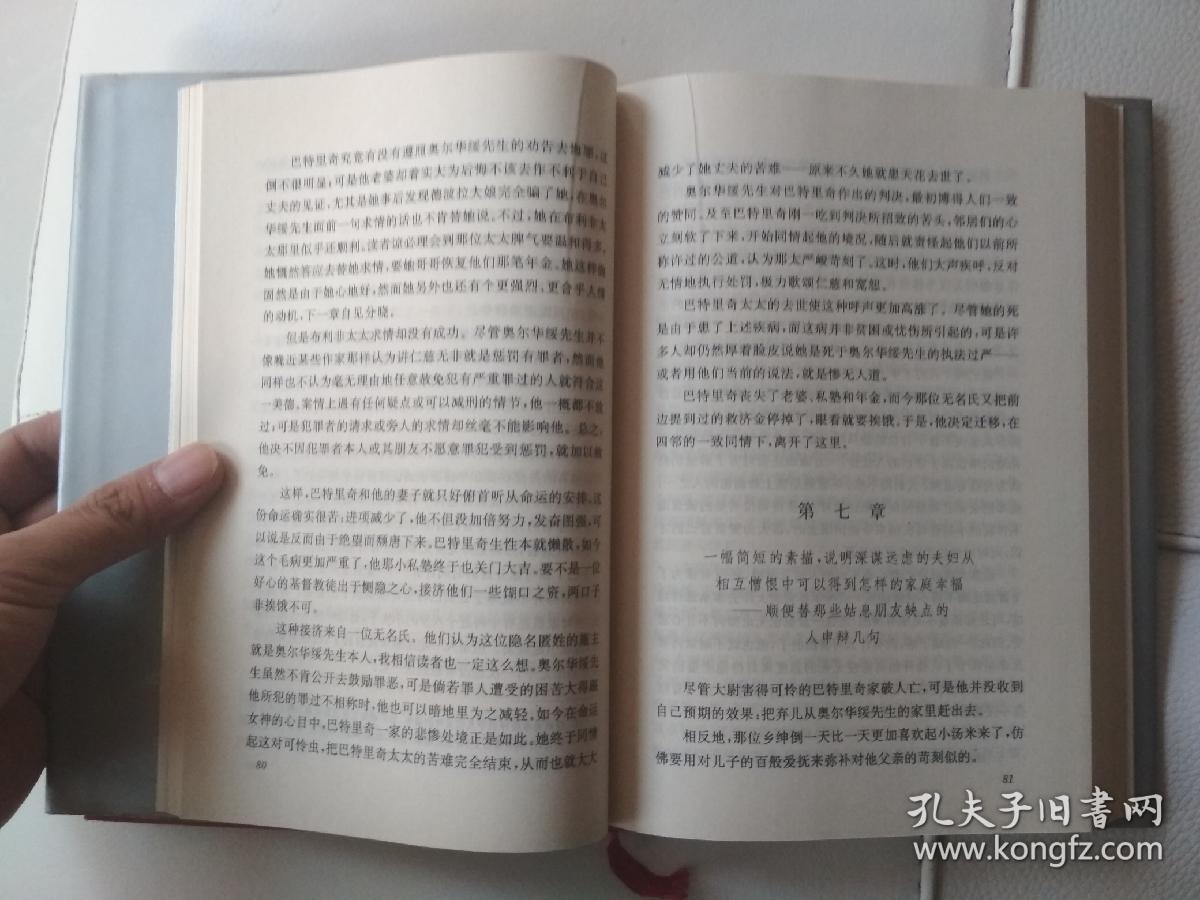 巴特里奇究竟有没有遵照奥尔华绥先生的劝告去
倒不很明显，可是他老婆却着实大为后悔不该去作不利于自己
丈夫的见证，尤其是她事后发现德波拉大娘完全骗了她，在奥尔
华绥先生面前一句求情的话也不肯替她说。不过，她在布利非太
太那里似乎还顺利。读者谅必理会到那位太太脾气要温和得多，
她慨然答应去替她求情，要她哥哥恢复他们那笔年金。她这样做
固然是由于她心地好，然而她另外也还有个更强烈、更合乎人情
的动机，下一章自见分晓。
但是布利非太太求情却没有成功。尽管奥尔华绥先生并不
像晚近某些作家那样认为讲仁慈无非就是惩罚有罪者，然而他
同样也不认为毫无理由地任意赦免犯有严重罪过的人就符合这
一美德。案情上遇有任何疑点或可以减刑的情节，他一概都不放
过，可是犯罪者的请求或旁人的求情却丝毫不能影响他。总之，
他决不因犯罪者本人或其朋友不愿意罪犯受到惩罚，就加以赦
免。
这样，巴特里奇和他的妻子就只好俯首听从命运的安排。这
份命运确实很苦；进项减少了，他不但没加倍努力，发奋图强，可
以说是反而由于绝望而颓唐下来。巴特里奇生性本就懒散，如今
这个毛病更加严重了，他那小私塾终于也关门大吉。要不是一位
好心的基督教徒出于恻隐之心，接济他们一些餬口之资，两口子
非挨饿不可。
这种接济来自一位无名氏。他们认为这位隐名匿姓的施主
就是奥尔华绥先生本人，我相信读者也一定这么想。奥尔华绥先
生虽然不肯公开去鼓励罪恶，可是倘若罪人遭受的困苦大得跟
他所犯的罪过不相称时，他也可以暗地里为之减轻。如今在命运
女神的心目中，巴特里奇一家的悲惨处境正是如此。她终于同情
起这对可怜虫，把巴特里奇太太的苦难完全结束，从而也就大大
80
减少了她丈夫的苦难——原来不久她就患天花去世了。
奥尔华绥先生对巴特里奇作出的判决，最初博得人们一致
的赞同。及至巴特里奇刚一吃到判决所招致的苦头，邻居们的心
立刻软了下来，开始同情起他的境况，随后就责怪起他们以前所
称许过的公道，认为那太严峻苛刻了。这时，他们大声疾呼，反对
无情地执行处罚，极力歌颂仁慈和宽恕。
巴特里奇太太的去世使这种呼声更加高涨了。尽管她的死
是由于患了上述疾病，而这病并非贫困或忧伤所引起的，可是许
多人却仍然厚着脸皮说她是死于奥尔华绥先生的执法过严——
或者用他们当前的说法，就是惨无人道。
巴特里奇丧失了老婆、私塾和年金，而今那位无名氏又把前
边提到过的救济金停掉了，眼看就要挨饿。于是，他决定迁移，在
四邻的一致同情下，离开了这里。
第七章
一幅简短的素描，说明深谋远虑的夫妇从
相互憎恨中可以得到怎样的家庭幸福
——顺便替那些姑息朋友缺点的
人申辩几句
尽管大尉害得可怜的巴特里奇家破人亡，可是他并没收到
自己预期的效果：把弃儿从奥尔华绥先生的家里赶出去。
相反地，那位乡绅倒一天比一天更加喜欢起小汤米来了，仿
佛要用对儿子的百般爱抚来弥补对他父亲的苛刻似的。
81
孔夫子旧书网
www.kongfz.com